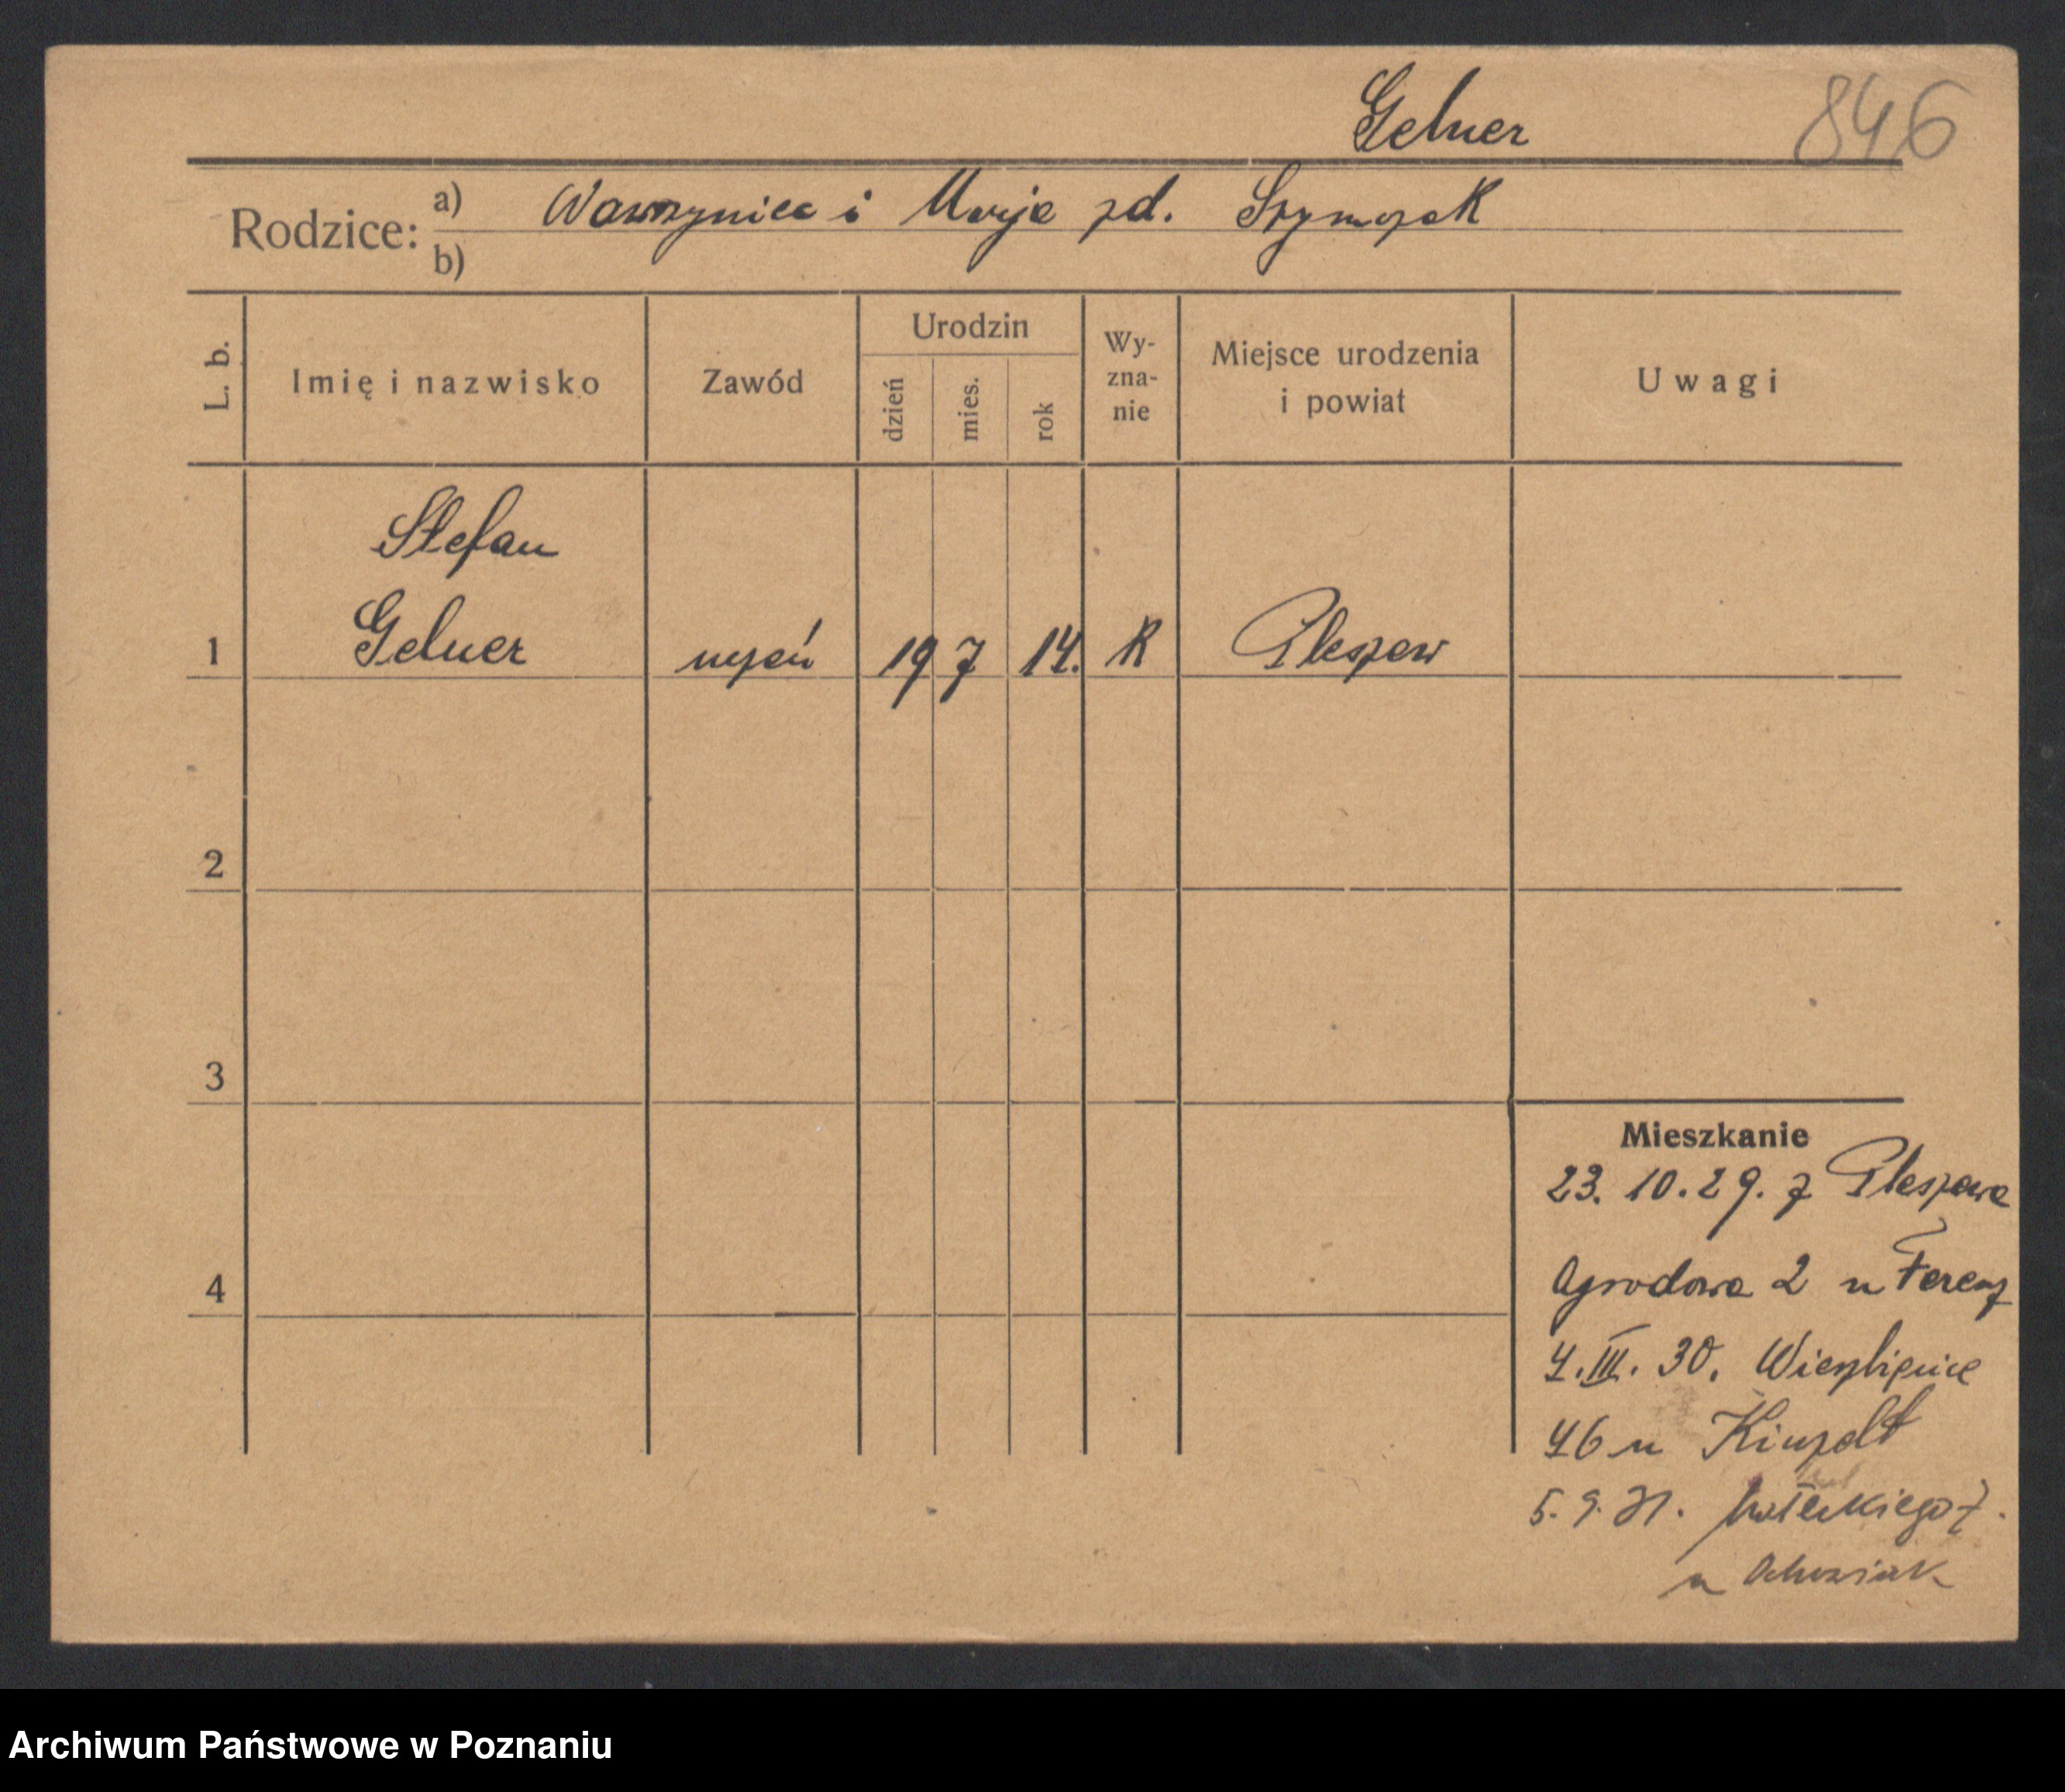 Gelner 846
Rodzice: a) Wawrzyniec i Marja zd. Szymczak
b)
L. b. Imię i nazwisko Zawód Urodzin dzień mies. rok Wy-zna-nie Miejsce urodzenia i powiat Uwagi
Stefan
1 Gelner uczeń 19 7 14. R Pleszew
2
3
Mieszkanie
23. 10. 29. z Pleszewa
4 Ogrodowa 2 u Ferenz
4. III. 30. Wierzbięcice
46 u
5. 9. 31. 7.
u
Archiwum Państwowe w Poznaniu